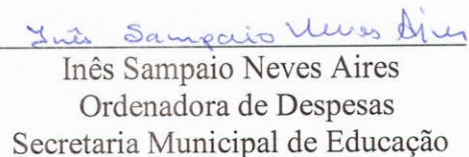 Inês Sampaio Neves Aires
Inês Sampaio Neves Aires
Ordenadora de Despesas
Secretaria Municipal de Educação